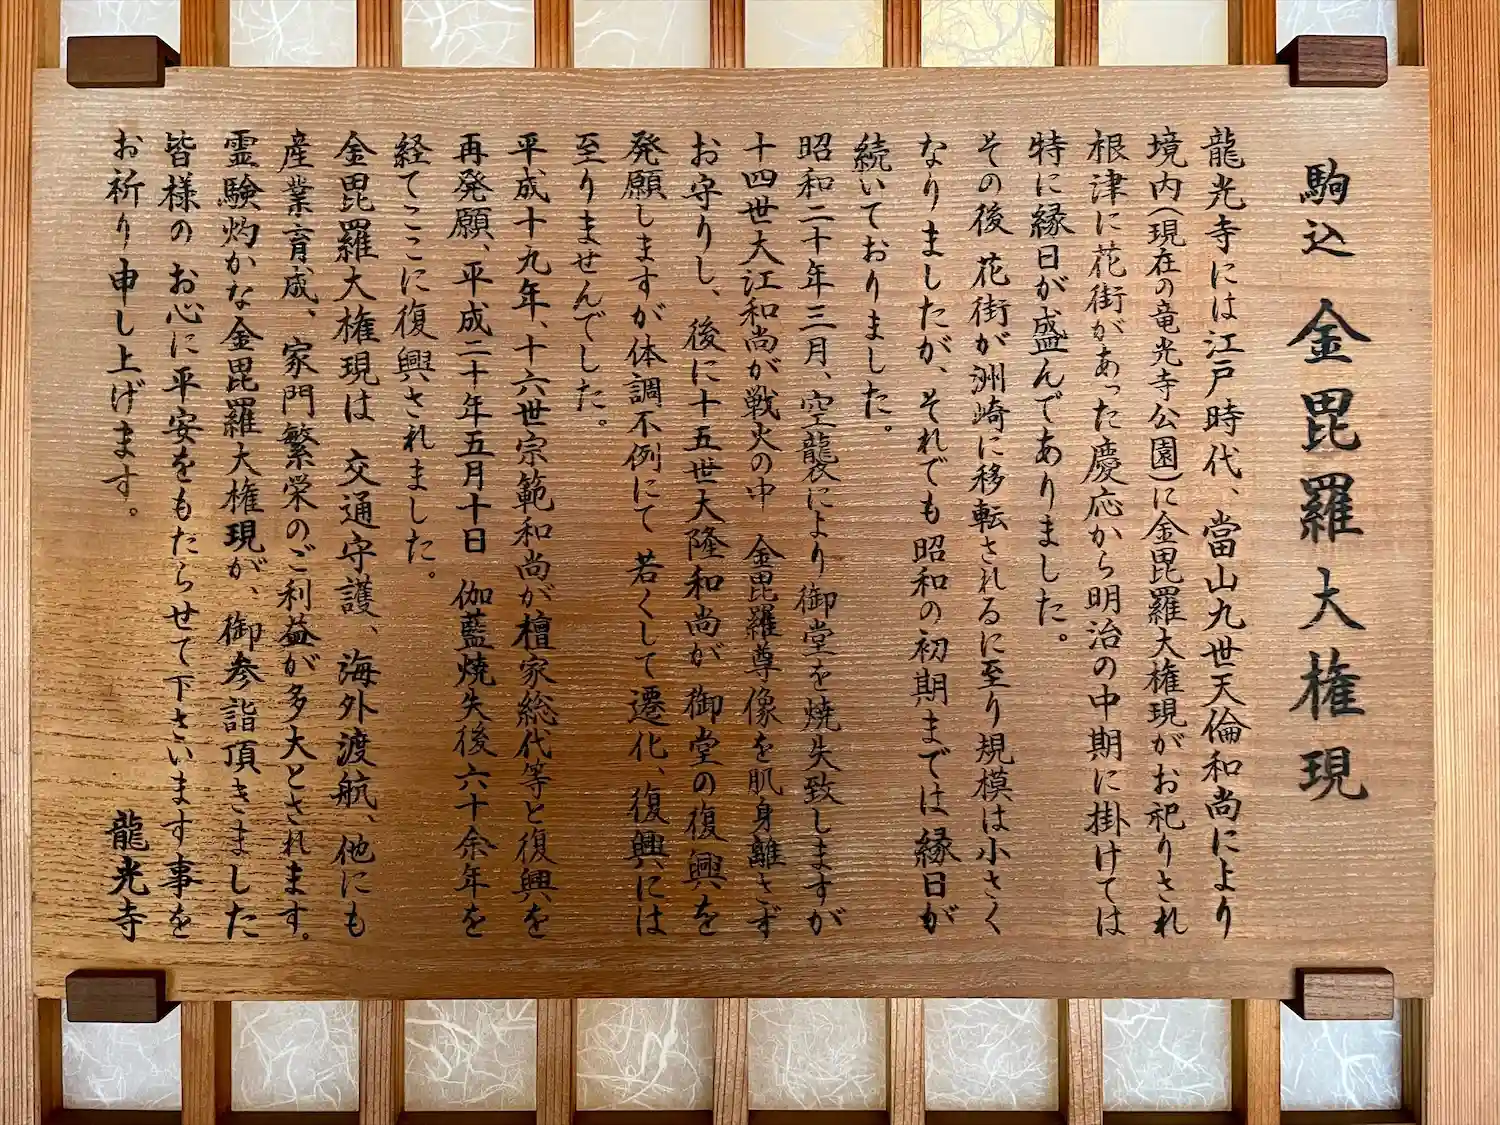 駒込 金毘羅大権現
龍光寺には江戸時代、當山九世天倫和尚により
境内(現在の竜光寺公園)に金毘羅大権現がお祀りされ
根津に花街があった慶応から明治の中期に掛けては
特に縁日が盛んでありました。
その後 花街が洲崎に移転されるに至り規模は小さく
なりましたが、それでも昭和の初期までは縁日が
続いておりました。
昭和二十年三月、空襲により御堂を焼失致しますが
十四世大江和尚が戦火の中 金毘羅尊像を肌身離さず
お守りし、後に十五世大隆和尚が御堂の復興を
発願しますが体調不例にて 若くして遷化、復興には
至りませんでした。
平成十九年、十六世宗範和尚が檀家総代等と復興を
再発願、平成二十年五月十日 伽藍焼失後六十余年を
経てここに復興されました。
金毘羅大権現は 交通守護、海外渡航、他にも
産業育成、家門繁栄のご利益が多大とされます。
霊験灼かな金毘羅大権現が、御参詣頂きました
皆様の お心に平安をもたらせて下さいます事を
お祈り申し上げます。
龍光寺